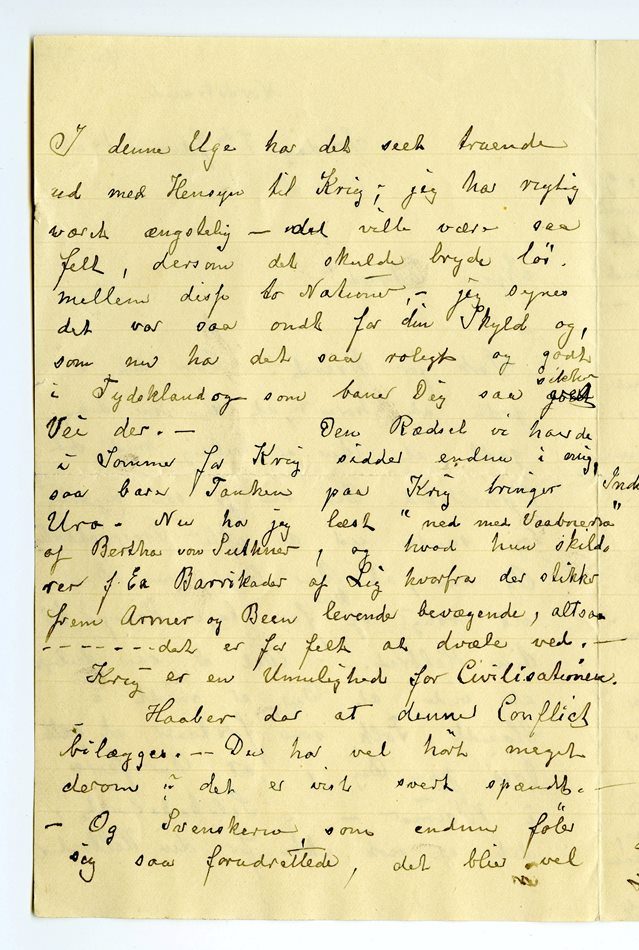 I denne Uge har det seet truende
ud med Hensyn til Krig; jeg har rigtig
været ængstelig – det ville være saa
fælt, dersom det skulde bryde løs.
mellem disse to Nationer, – jeg synes
det var saa ondt for din Skyld og,
som nu har det saa roligt og godt
i Tydskland og som baner Dig saa sikker
Vei der. – Den Rædsel vi havde
i Sommer for Krig sidder endnu i mig,
saa bare Tanken paa Krig bringer
Uro. Nu har jeg læst "ned med Vaabnene"
af Bertha von Suttner, og hvad hun skild
rer f. Ex Barrikader af Lig hvorfra der stikker
frem Armer og Been levende bevægende, altsaa
------- det er for fælt at dvæle ved. –
Krig er en Umulighed for Civilisationen.
Haaber dar at denne Conflict
bilægges. – Du har vel hørt meget
derom i det er vist svert spændt. –
– Og Svenskerne, som endnu føler
sig saa forudrettede, det blir vel
Ind